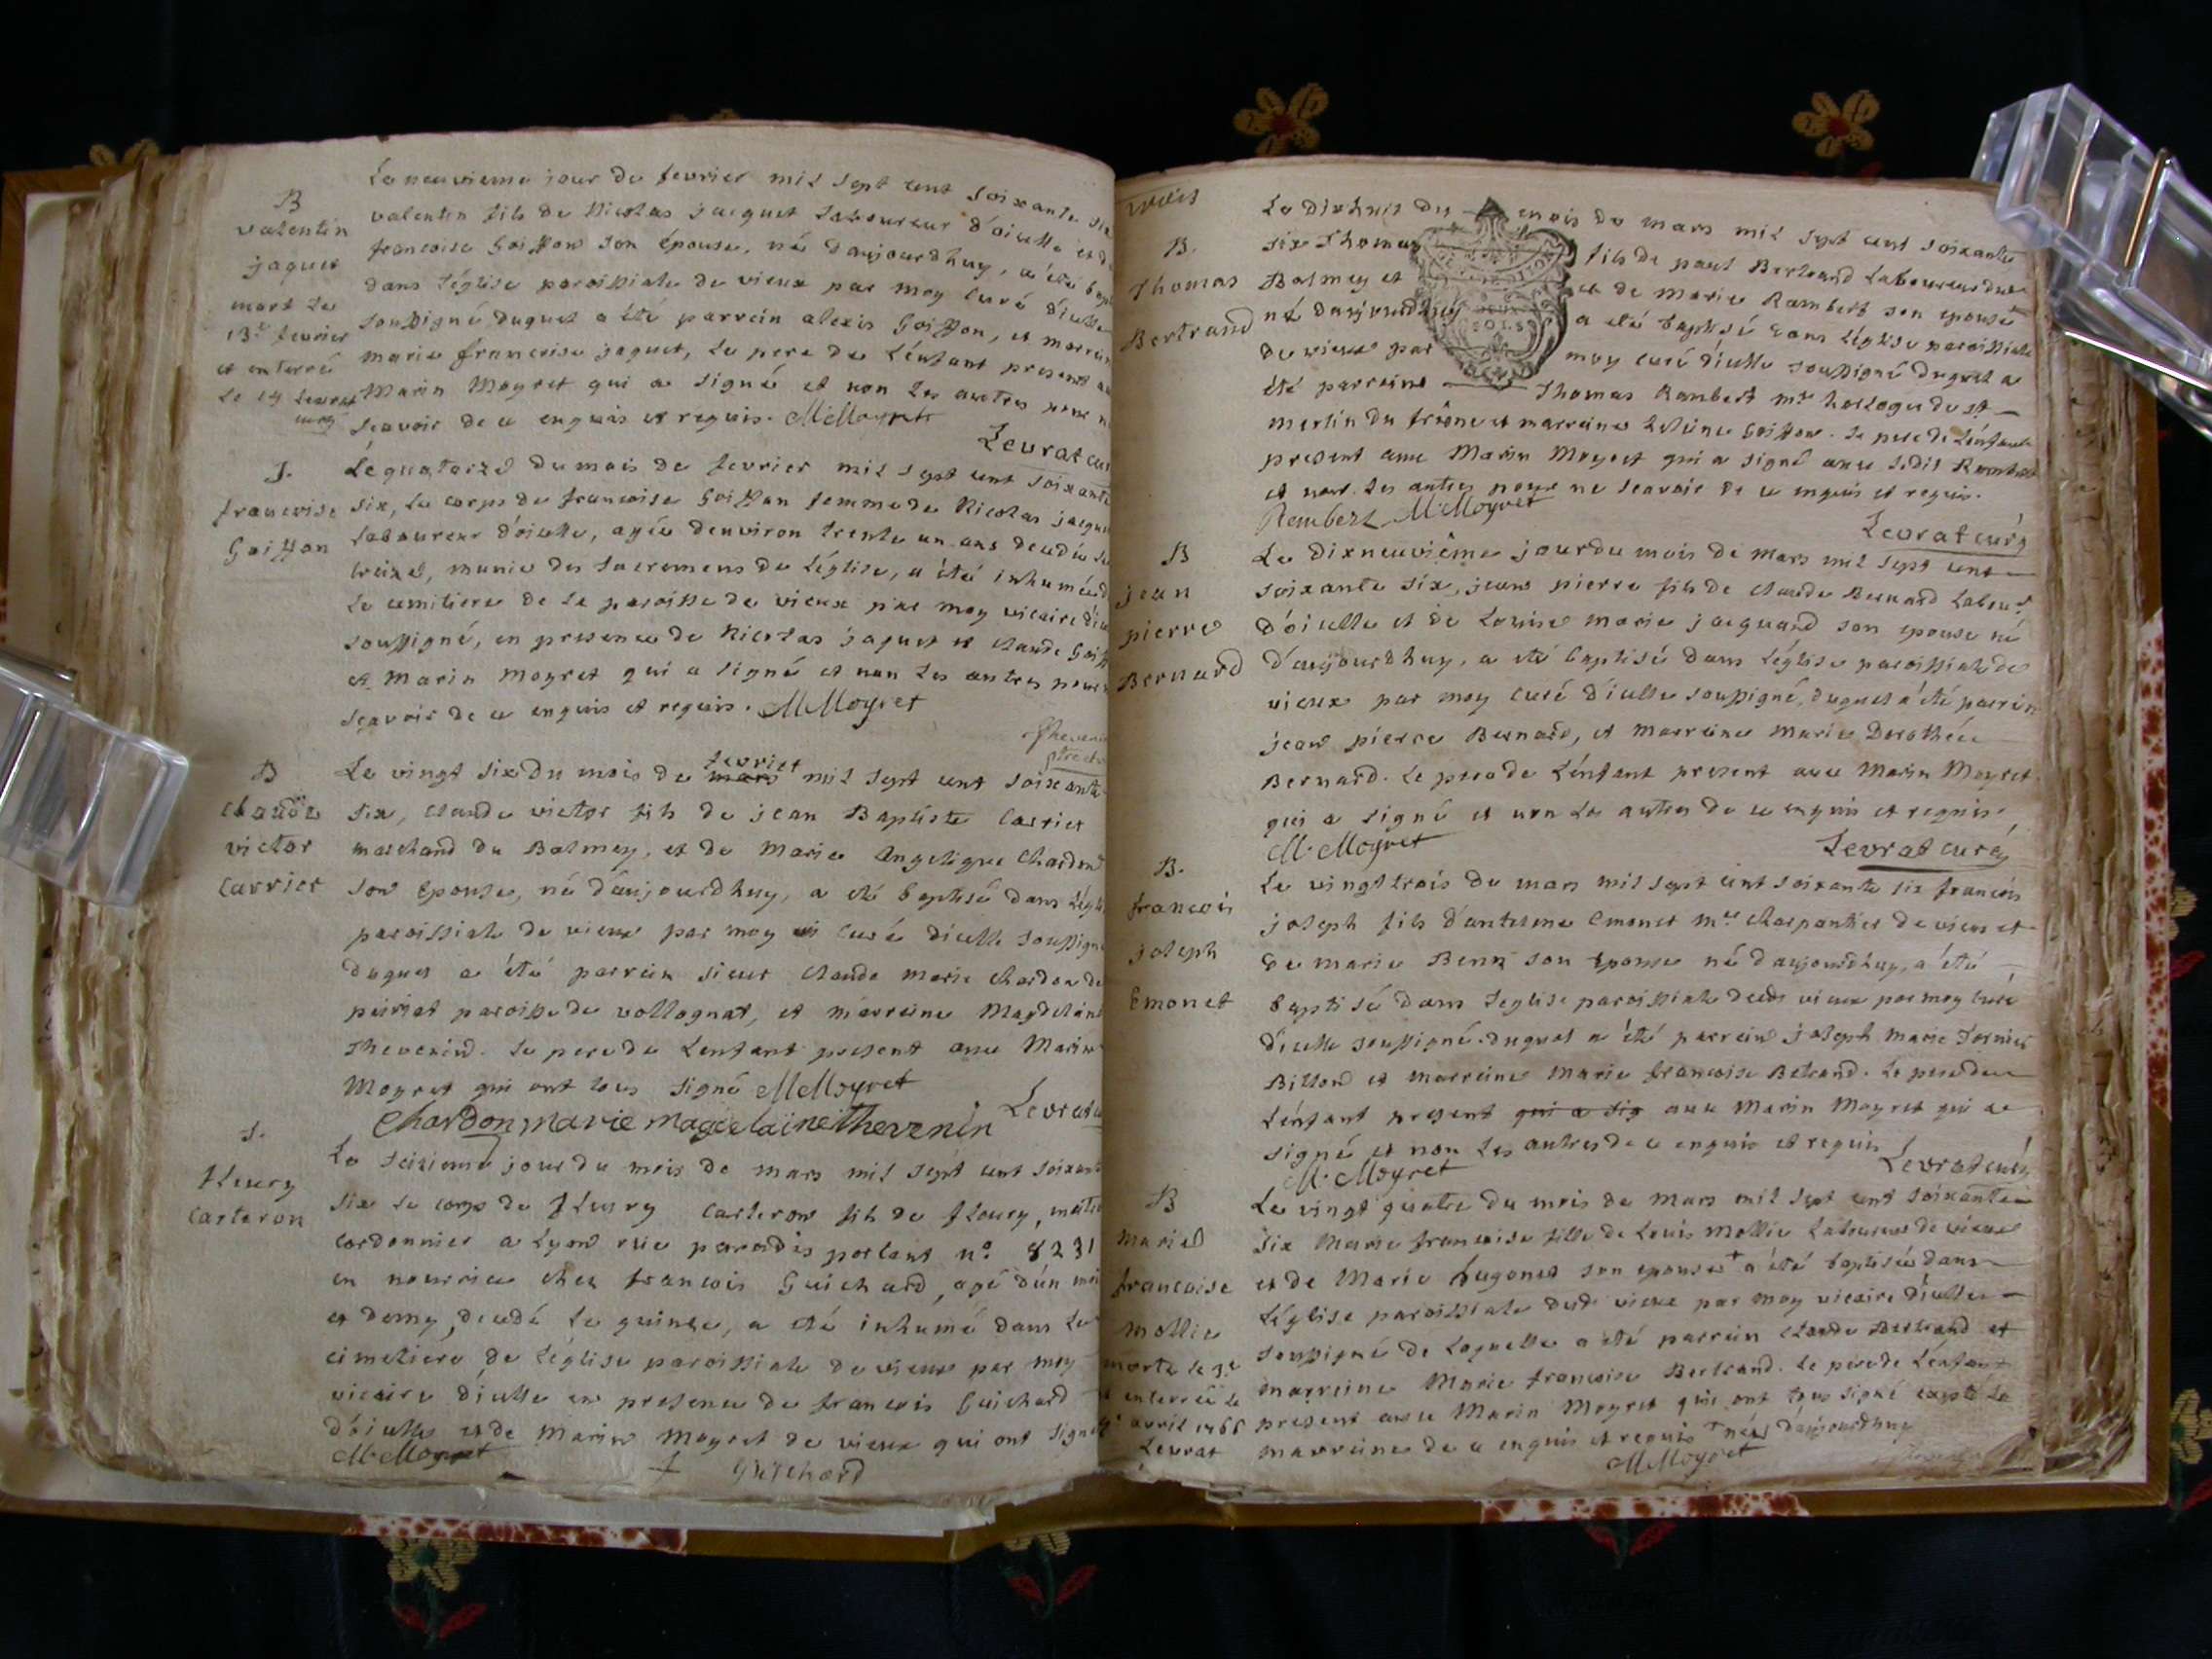 B
valentin
jaquet
mort le
13e fevrier
et enterré
le 14 Levrat
curé
Le neuvieme jour de fevrier mil sept cent soixante six
valentin fils de Nicolas jacquet Laboureur d'icelle et de
francoise Goiffon son épouse, né daujourdhuy, a été bapt
dans l'église paroissiale de vieux par moy Curé d'icelle
soussigné duquel a été parrein alexis Goiffon, et marrein
marie francoise jaquet, Le pere de L'enfant present av
Marin Moyret qui a signé et non Les autres pour n
scavoir de ce enquis et requis. M Moyret
Levrat cur
S.
francoise
Goiffon
Le quatorze du mois de fevrier mil sept cent soixante
six, Le corps de francoise Goiffon femme de Nicolas jacque
Laboureur d'icelle, agée denviron trente un ans decedée le
treize, munie des sacremens de L'église, a été inhumée d
Le cemitiere de la paroisse de vieux par moy vicaire d'ice
soussigné, en presence de Nicolas jaquet et claude Goiff
et Marin Moyret qui a signé et non Les autres pour n
scavoir de ce enquis et requis. M Moyret
Theveni
B
claude
victor
Carrier
Le vingt six du mois de mars fevrier mil sept cent soixante
six, claude victor fils de jean Baptiste Carrier
marchand du Balmey, et de Marie Angelique Chardon
son Epouse, né daujourdhuy, a été baptisé dans L'égli
paroissiale de vieux par moy vi curé d'icelle soussigné
duquel a été parrein sieur claude marie Chardon de
paroisse de vollognat, et marreine Magdelaine
Thevenin. Le pere de Lenfant present avec Marin
Moyret qui ont tous signé M Moyret
Chardon Marie Magdelaine Thevenin Levrat cu
S.
fleury
Carteron
Le seizieme jour du mois de mars mil sept cent soixante
six Le corps de fleury Carteron fils de fleury, maître
Cordonnier a Lyon rue paradis portant n° 8231
en nourrice chez francois Guichard, agé d'un moi
et demy, decedé Le quinze, a été inhumé dans Le
cimetiere de L'église paroissiale de vieux par moy
vicaire d'icelle en presence de francois Guichard
d'icelle et de Marin Moyret de vieux qui ont signé
M Moyret Guichard
B.
Thomas
Bertrand
Le dixhuit du mois de mars mil sept cent soixante
six Thomas fils de paul Bertrand Laboureur du
Balmey et et de Marie Rambert son epouse
né daujourdhuy a été baptisé dans L'église paroissiale
de vieux par moy curé d'icelle soussigné duquel a
été parreins Thomas Rambert me horloger de st
martin du frêne et marreine Goiffon. Le pere de L'enfant
present avec Marin Moyret qui a signé avec Ledit Rambert
et non Les autres pour ne scavoir de ce enquis et requis.
Rembert M Moyret
Levrat curé
B
jean
pierre
Bernard
Le dixneuvième jour du mois de mars mil sept cent
soixante six, jean pierre fils de claude Bernard Labour
d'icelle et de Louise marie jacquand son epouse né
d'aujourdhuy, a été baptisé dans L'église paroissiale de
vieux par moy curé d'icelle soussigné, duquel a été parrein
jean pierre Bernard, et marreine marie Dorothée
Bernard. Le pere de L'enfant present avec Marin Moyret
qui a signé et non Les autres de ce enquis et requis,
M Moyret
Levrat curé
B.
francois
joseph
Emonet
Le vingt trois de mars mil sept cent soixante six francois
joseph fils d'antelme Emonet me charpantier de vieux et
de marie Benn son Epouse né daujourdhuy, a été
baptisé dans L'église paroissiale dudt vieux par moy curé
d'icelle soussigné duquel a été parrein joseph marie
Billond et marreine Marie francoise Betrand. Le pere de
L'enfant present qui a sig avec Marin Moyret qui a
signé et non Les autres de ce enquis et requis
M Moyret
Levrat curé
B
Marie
francoise
Mollie
morte le 3e
enterrée le
avril 1766
Levrat
Le vingt quatre du mois de mars mil sept cent soixante
six Marie francoise fille de Louis Mollie Laboureur de vieux
et de Marie hugonet son epouse + a été baptisée dans
L'église paroissiale dudt vieux par moy vicaire d'icelle
soussigné de Laquelle a été parrein claude Bertrand et
marreine Marie francoise Bertrand. Le pere de L'enfant
present avec Marin Moyret qui ont tous signé excepté La
marreine de ce enquis et requis + née daujourdhuy
M Moyret